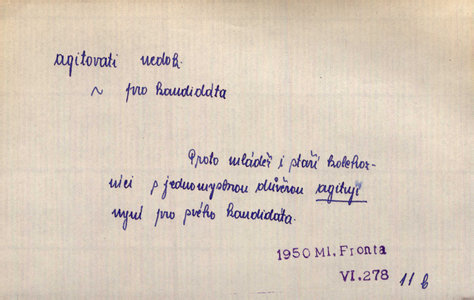 agitovati nedok.
~ pro kandidáta
Proto mládež i staří kolchoz-
níci s jednomyslnou důvěrou agitují
nyní pro svého kandidáta.
1950 Ml. Fronta
VI.278 11 b